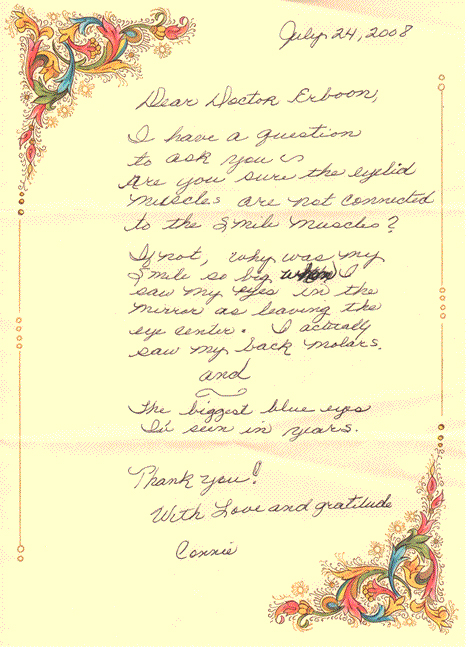 July 24, 2008
Dear Doctor Erboon,
I have a question
to ask you
Are you sure the eyelid
muscles are not connected
to the smile muscles?
If not, why was my
smile so big when I
saw my eyes in the
mirror as leaving the
eye center. I actually
saw my back molars.
and
The biggest blue eyes
I'v seen in years.
Thank you!
With Love and gratitude
Connie